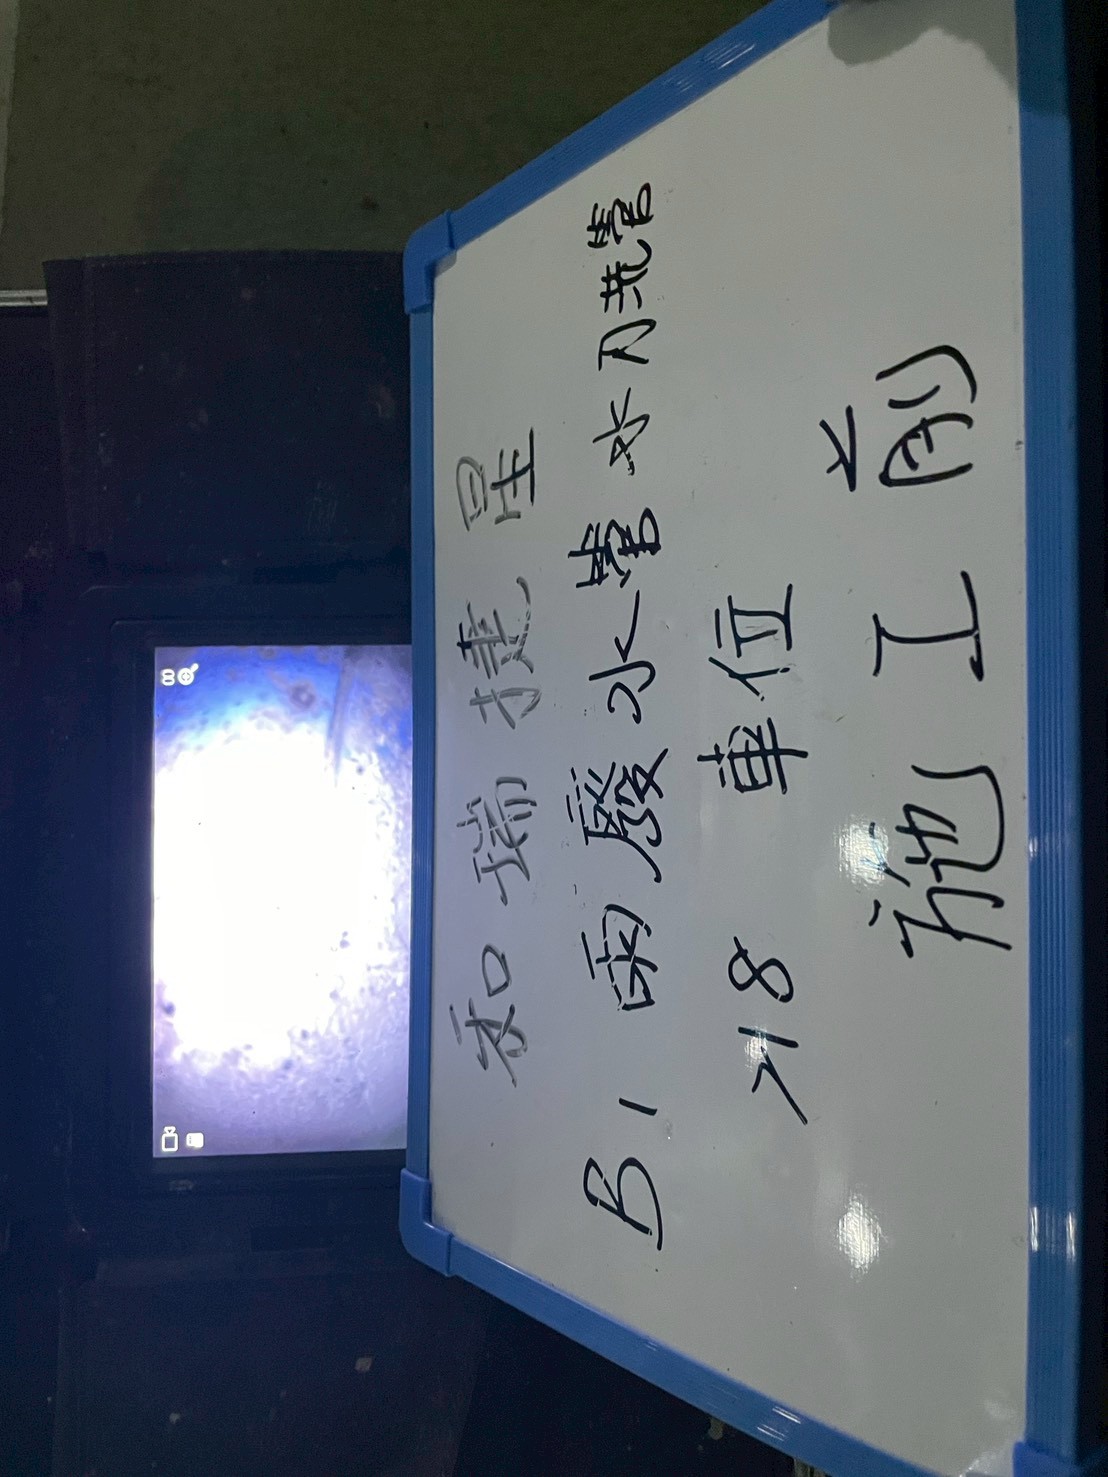 和瑞捷星
B1 雨廢水管水刀洗管
718 車位
施工前